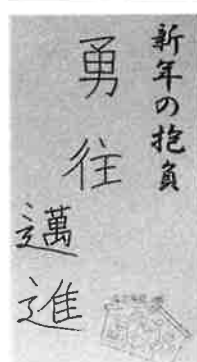 新年の抱負
勇往邁進